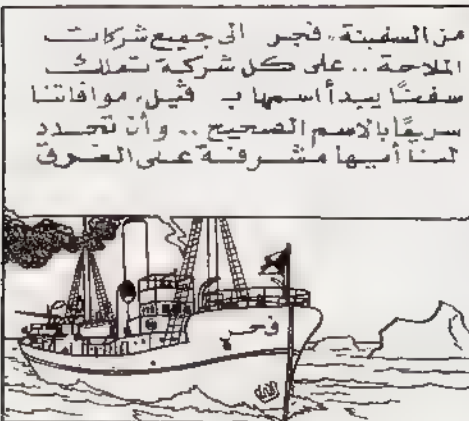 من السفينة، فجر الى جميع شركات
الملاحة .. على كل شركة تملك
سفنًا يبدأ اسمها بـ فيل، موافاتنا
سريعًا بالاسم الصحيح .. وأن تحدد
لنا أيها مشرفة على الغرق
فجر